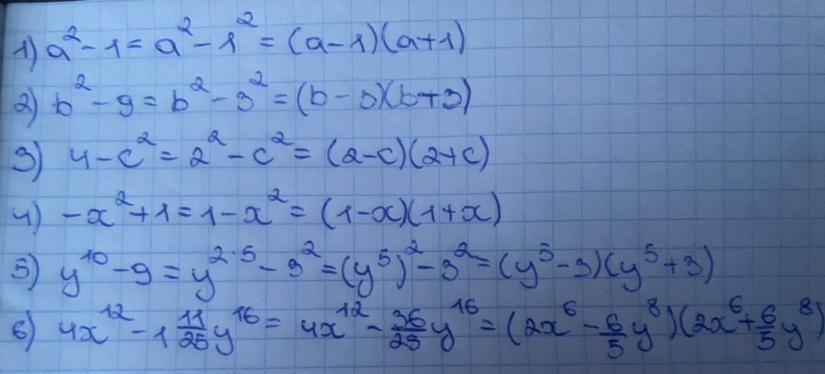 1) a² - 1 = a² - 1² = (a - 1)(a + 1)
2) b² - 9 = b² - 3² = (b - 3)(b + 3)
3) 4 - c² = 2² - c² = (2 - c)(2 + c)
4) -x² + 1 = 1 - x² = (1 - x)(1 + x)
5) y¹⁰ - 9 = y²·⁵ - 3² = (y⁵)² - 3² = (y⁵ - 3)(y⁵ + 3)
6) 4x¹² - 1 11/25 y¹⁶ = 4x¹² - 36/25 y¹⁶ = (2x⁶ - 6/5 y⁸)(2x⁶ + 6/5 y⁸)